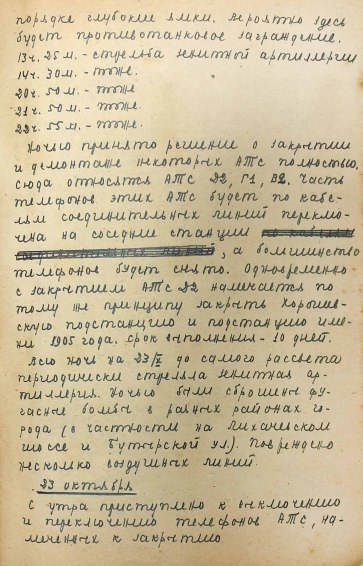 порядке глубокие ямки. Вероятно здесь
будет противотанковое заграждение.
13ч. 25м. - стрельба зенитной артиллерии
14ч. 30м. - тоже.
20ч. 50м. - тоже
21ч. 50м. - тоже.
22ч. 55м. - тоже.
Ночью принято решение о закрытии
и демонтаже некоторых АТС полностью.
Сюда относятся АТС Д2, Г1, В2. Часть
телефонов этих АТС будет по кабе-
лям соединительных линий переклю-
чена на соседние станции
, а большинство
телефонов будет снято. Одновременно
с закрытием АТС Д2 намечается по
тому же принципу закрыть Хорошев-
скую подстанцию и подстанцию име-
ни 1905 года. Срок выполнения - 10 дней.
Всю ночь на 23/X до самого рассвета
периодически стреляла зенитная ар-
тиллерия. Ночью были сброшены фу-
гасные бомбы в разных районах го-
рода (в частности на Лихачевском
шоссе и Бутырской ул.). Повреждено
несколько воздушных линий.
23 октября
С утра приступлено к выключению
и переключению телефонов АТС, на-
меченных к закрытию.